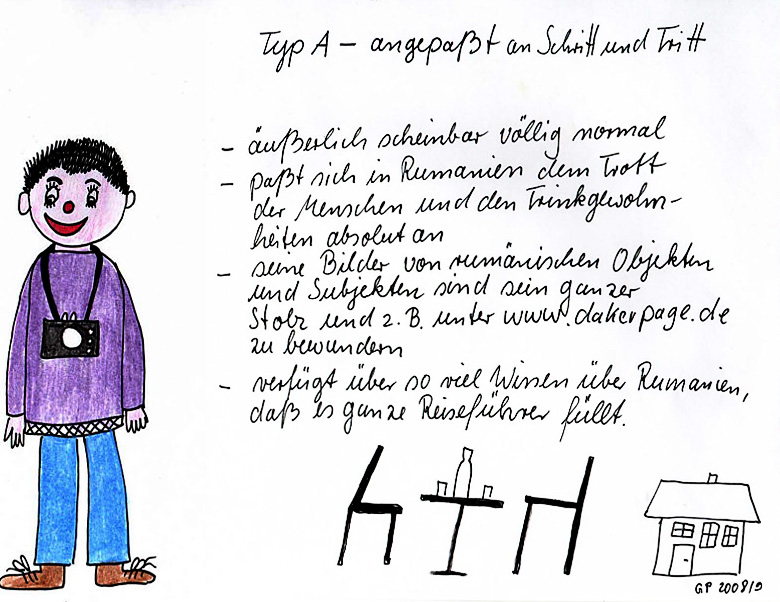 Typ A – angepaßt an Schritt und Tritt
– äußerlich scheinbar völlig normal
– paßt sich in Rumänien dem Trott
der Menschen und den Trinkgewohn-
heiten absolut an
– seine Bilder von rumänischen Objekten
und Subjekten sind sein ganzer
Stolz und z.B. unter www.dakerpage.de
zu bewundern
– verfügt über so viel Wissen über Rumänien,
daß es ganze Reiseführer füllt.
GP 2008/9